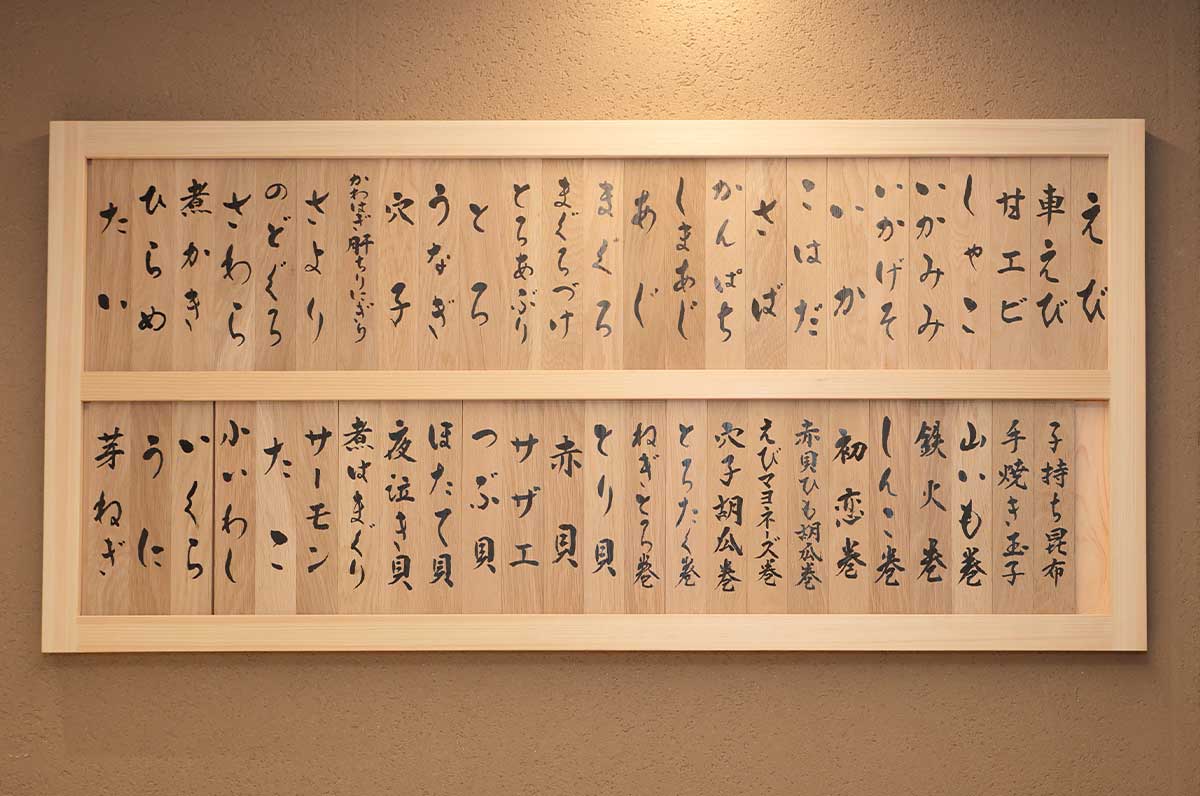 えび
車えび
甘エビ
しゃこ
いかみみ
いかげそ
いか
こはだ
さば
かんぱち
しまあじ
あじ
まぐろ
まぐろづけ
とろあぶり
とろ
うなぎ
穴子
かわはぎ肝ちりにぎり
さより
のどぐろ
さわら
煮かき
ひらめ
たい
子持ち昆布
手焼き玉子
山いも巻
鉄火巻
しんこ巻
初恋巻
赤貝ひも胡瓜巻
えびマヨネーズ巻
穴子胡瓜巻
とろたく巻
ねぎとろ巻
とり貝
赤貝
サザエ
つぶ貝
ほたて貝
夜泣き貝
煮はまぐり
サーモン
たこ
小いわし
いくら
うに
芽ねぎ